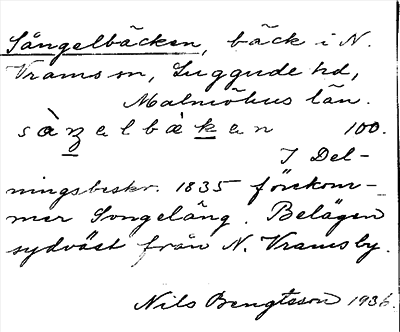 Sångelbäcken, bäck i N.
Vrams sn, Luggude hd,
Malmöhus län.
sàȥelbàken 100.
I Del-
ningsbeskr. 1835 förekom-
mer Songelång. Belägen
sydväst från N. Vramsby.
Nils Bengtsson 1936.